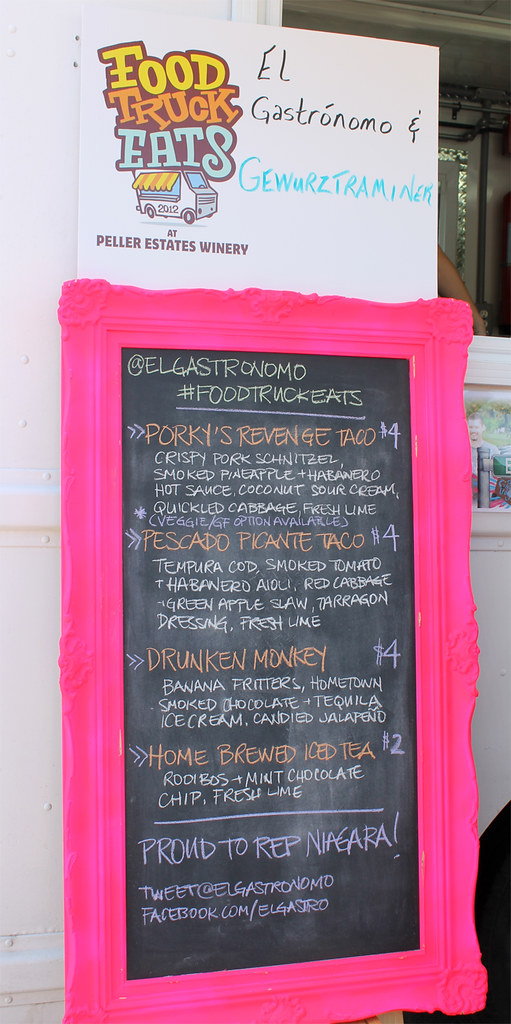 FOOD
TRUCK
EATS
2012
AT
PELLER ESTATES WINERY
El
Gastrónomo &
GEWURZTRAMINER
@ELGASTRONOMO
#FOODTRUCKEATS
>>PORKY'S REVENGE TACO $4
CRISPY PORK SCHNITZEL,
SMOKED PINEAPPLE + HABANERO
HOT SAUCE, COCONUT SOUR CREAM,
QUICKLED CABBAGE, FRESH LIME
* (VEGGIE/GF OPTION AVAILABLE)
>>PESCADO PICANTE TACO $4
TEMPURA COD, SMOKED TOMATO
+ HABANERO AIOLI, RED CABBAGE
+ GREEN APPLE SLAW, TARRAGON
DRESSING, FRESH LIME
>>DRUNKEN MONKEY $4
BANANA FRITTERS, HOMETOWN
SMOKED CHOCOLATE + TEQUILA
ICE CREAM, CANDIED JALAPEÑO
>>HOME BREWED ICED TEA $2
ROOIBOS + MINT CHOCOLATE
CHIP, FRESH LIME
PROUD TO REP NIAGARA!
TWEET@ELGASTRONOMO
FACEBOOK.COM/ELGASTRO